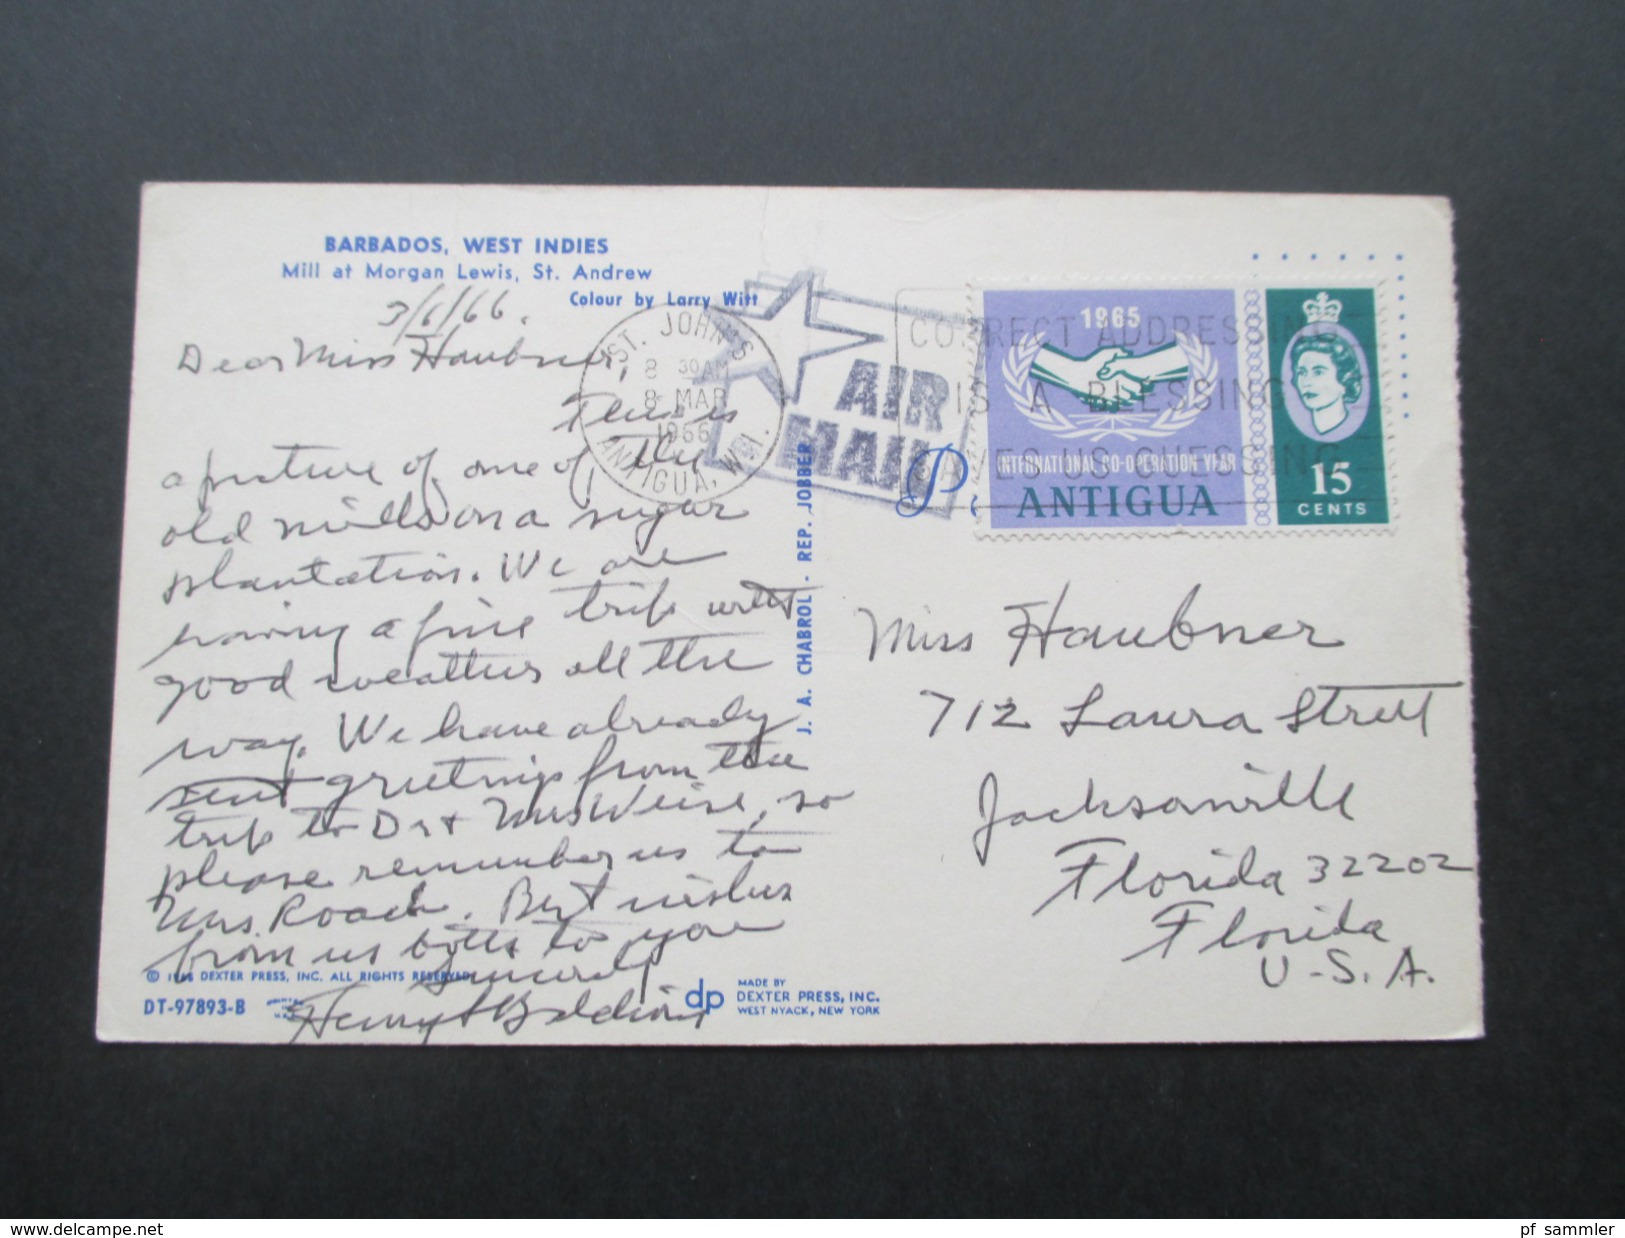 BARBADOS, WEST INDIES
Mill at Morgan Lewis, St. Andrew
Colour by Larry Witt
3/6/66.
Dear Miss Haubner,
This is
a picture of one of the
old mills on a sugar
plantation. We are
having a fine trip with
good weather all the
way. We have already
sent greetings from the
trip to Dr & Mrs Weise, so
please remember us to
Mrs. Roach. Best wishes
from us both to you
Sincerely
Henry
© DEXTER PRESS, INC. ALL RIGHTS RESERVED
DT-97893-B
dp
MADE BY
DEXTER PRESS, INC.
WEST NYACK, NEW YORK
J. A. CHABROL - REP. JOBBER
ST. JOHN'S
8 30 AM
8 MAR
1966
ANTIGUA, W.I.
AIR
MAIL
CORRECT ADDRESSING
IS A BLESSING
SAVES US GUESSING
P.
1965
INTERNATIONAL CO-OPERATION YEAR
ANTIGUA
15
CENTS
Miss Haubner
712 Laura Street
Jacksonville
Florida 32202
Florida
U-S.A.
delcampe.net
pf_sammler